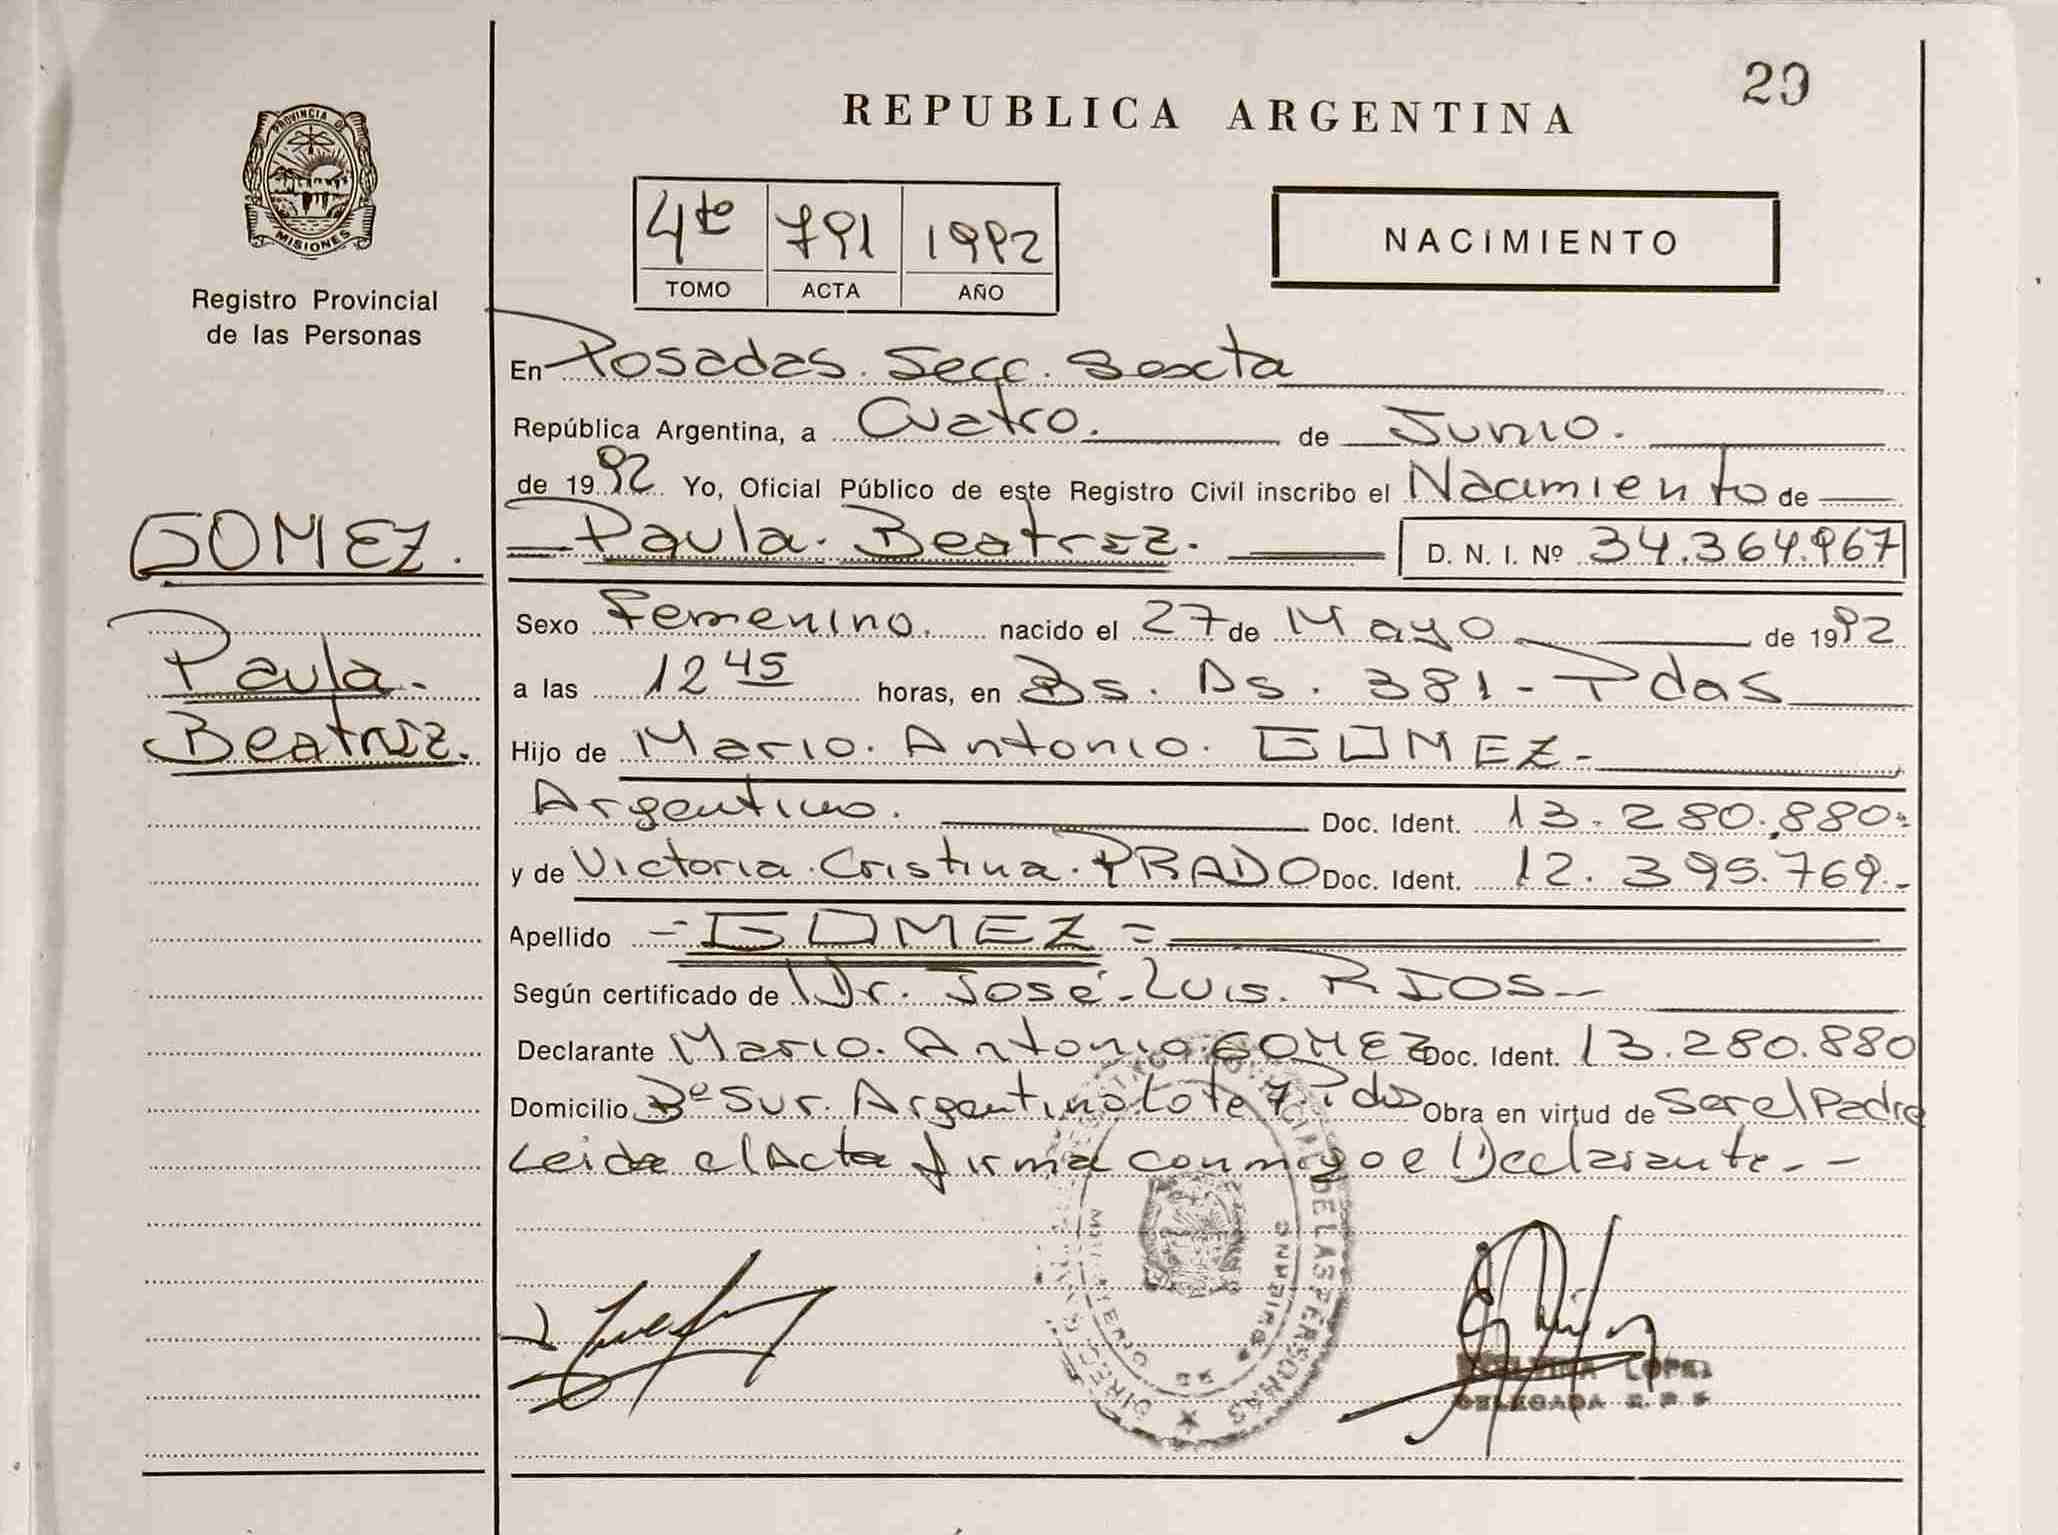 29
REPUBLICA ARGENTINA
PROVINCIA DE
MISIONES
Registro Provincial
de las Personas
4to 791 1992
TOMO ACTA AÑO
NACIMIENTO
En Posadas. Secc. Sexta
República Argentina, a Cuatro. de Junio.
de 1992 Yo, Oficial Público de este Registro Civil inscribo el Nacimiento de
GOMEZ.
Paula. Beatriz. D. N. I. Nº 34.364.967
Sexo Femenino. nacido el 27 de Mayo de 1992
Paula.
a las 12 45 horas, en Bs. As. 381 - Pdas
Beatriz.
Hijo de Mario. Antonio. GOMEZ -
Argentino. Doc. Ident. 13.280.880.
y de Victoria. Cristina. PRADO Doc. Ident. 12.395.769.-
Apellido - GOMEZ =
Según certificado de Dr. José Luis. RIOS -
Declarante Mario. Antonio. GOMEZ Doc. Ident. 13.280.880
Domicilio Bº Sur. Argentino Lote 7. Pdas Obra en virtud de Ser el Padre
Leida el Acta firma conmigo el Declarante. -
DE LAS PERSONAS
LOPEZ
DELEGADA R. P. P.